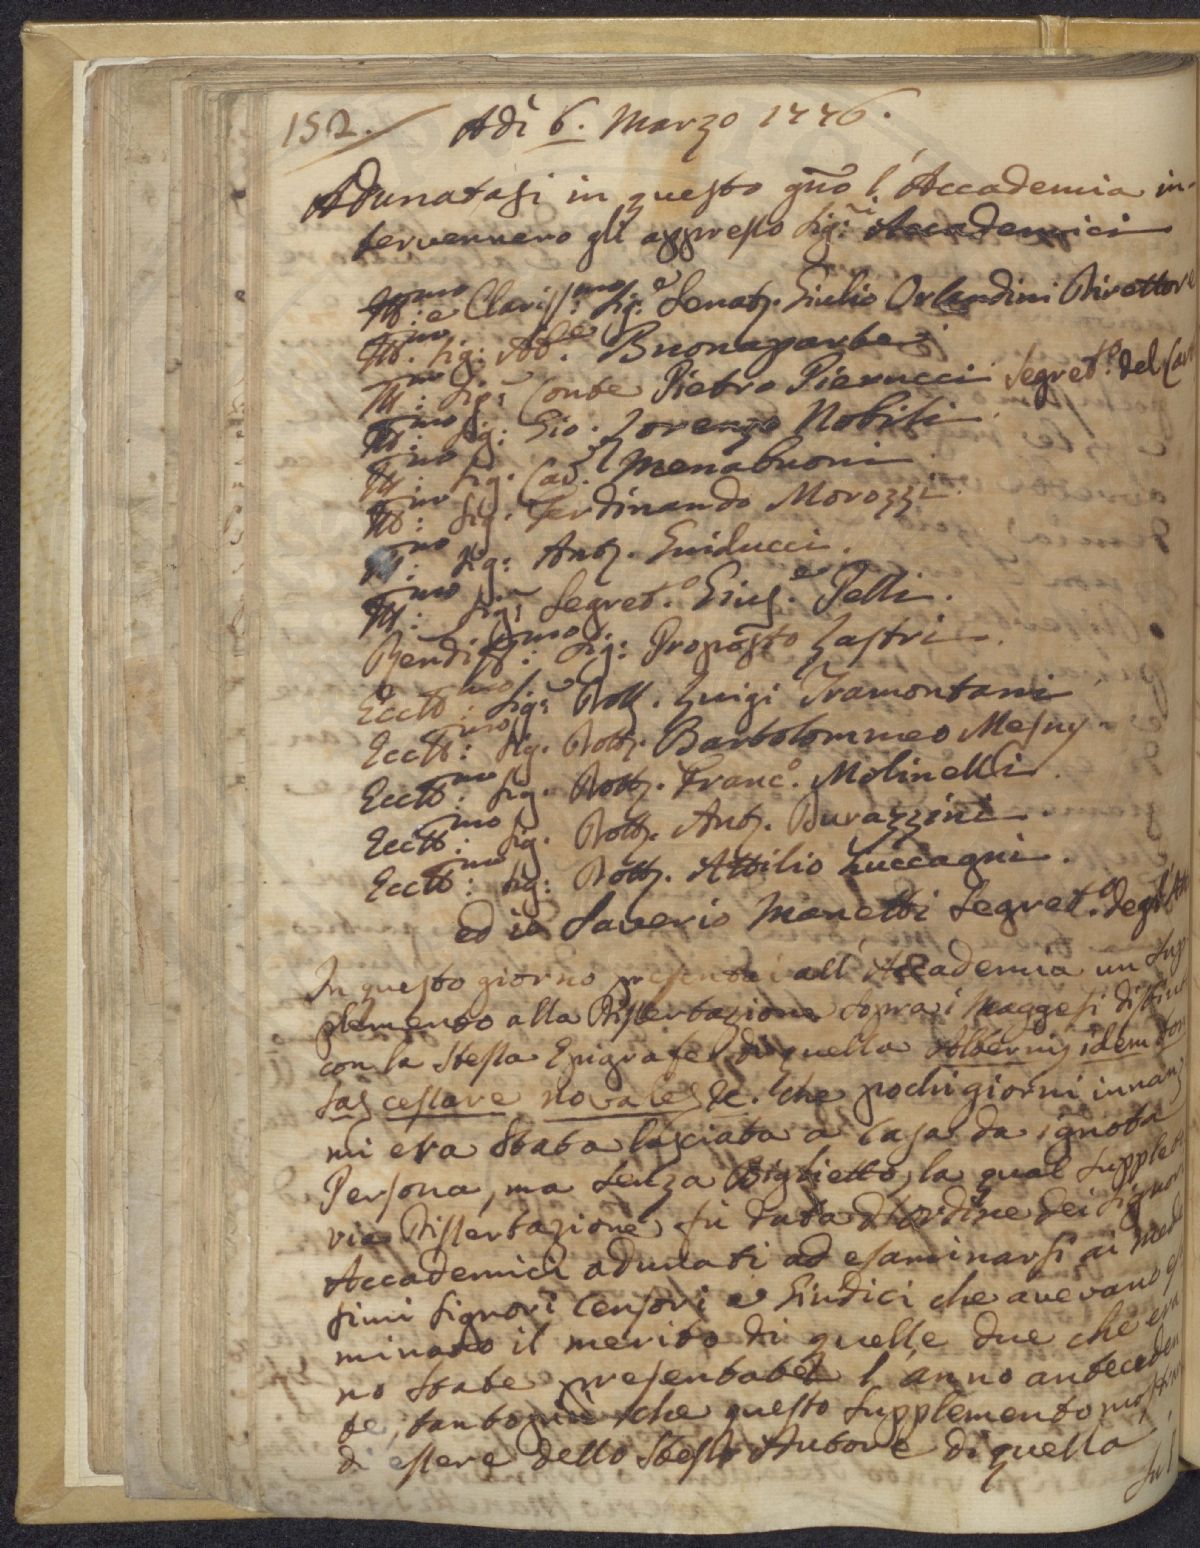 152. Adì 6. Marzo 1776.
Adunatasi in questo gno l'Accademia in-
tervennero gli appresso Sig:ri Accademici
Ill:mo e Clariss:mo Sig:e Senat. Giulio Orlandini Direttore
Ill:mo Sig: Ab:e Buonaparte
Ill:mo Sig: Conte Pietro Pierucci Segret:o del Car
Ill:mo Sig: Gio. Lorenzo Nobili
Ill:mo Sig. Cav. Menabuoni
Ill:mo Sig. Ferdinando Morozzi.
Ill:mo Sig: Ant. Guiducci.
Ill:mo Sig: Segret.o Gius.e Pelli.
Rendiss:mo Sig: Proposto Lastri.
Eccll:mo Sig: Dott. Luigi Tramontani
Eccll:mo Sig. Dott. Bartolommeo Mesny.
Eccll:mo Sig. Dott. Franc.o Molinelli.
Eccll:mo Sig. Dott. Ant. Durazzini.
Eccll:mo Sig: Dott. Attilio Zuccagni.
ed io Saverio Manetti Segret.o degli Atti
In questo giorno presentai all'Accademia un Sup
plemento alla Dissertazione sopra i Maggesi distint
con la stessa Epigrafe di quella Alternis idem ton
sas cessare novales &c. che pochi giorni innanz
mi era stata lasciata a Casa da ignota
Persona, ma senza Biglietto, la qual supplet
via Dissertazione fù data d'ordine dei Signori
Accademici adunati ad esaminarsi ai mede
simi Signori Censori e Giudici che avevano es
minato il merito di quelle due che era
no state presentate l'anno anteceden
te, tantopiù che questo supplemento mostra
di essere dello stesso Autore di quella